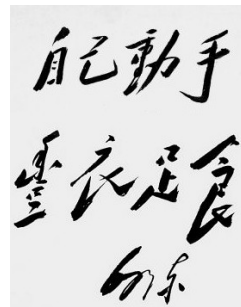 自己動手
豐衣足食
泽东